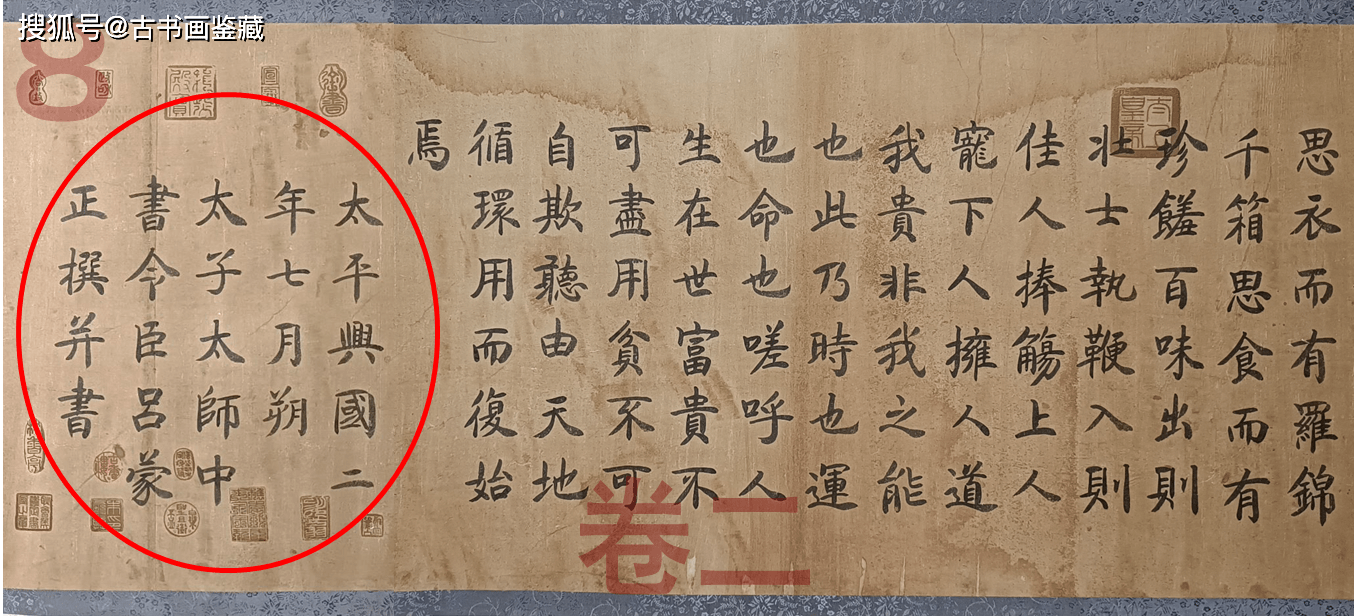 搜狐号@古书画鉴藏
8
思衣而有羅錦
千箱思食而有
珍饈百味出則
壯士執鞭入則
佳人捧觴上人
寵下人擁人道
我貴非我之能
也此乃時也運
也命也嗟呼人
生在世富貴不
可盡用貧不可
自欺聽由天地
循環用而復始
焉
太平興國二
年七月朔
太子太師中
書令臣呂蒙
正撰并書
卷二